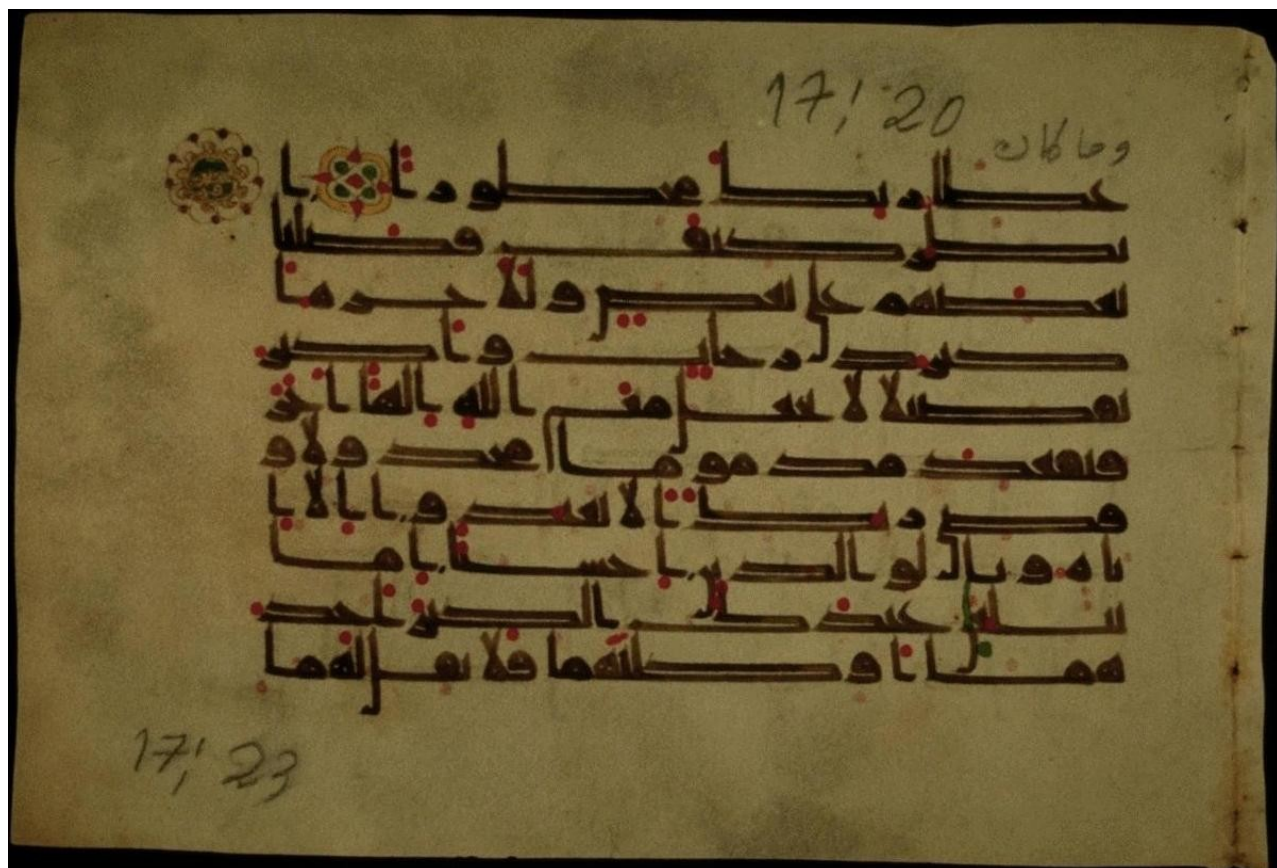 17; 20
وما كان
عطا ربك محظورا ا
نظر كيف فضلنا
بعضهم على بعض وللاخرة ا
كبر درجات واكبر
تفضيلا لا تجعل مع الله الها اخر
فتقعد مذموما مخذولا و
قضى ربك الا تعبدوا الا ا
ياه وبالولدين احسنا اما
يبلغن عندك الكبر احد
هما او كلهما فلا تقل لهما
17; 23